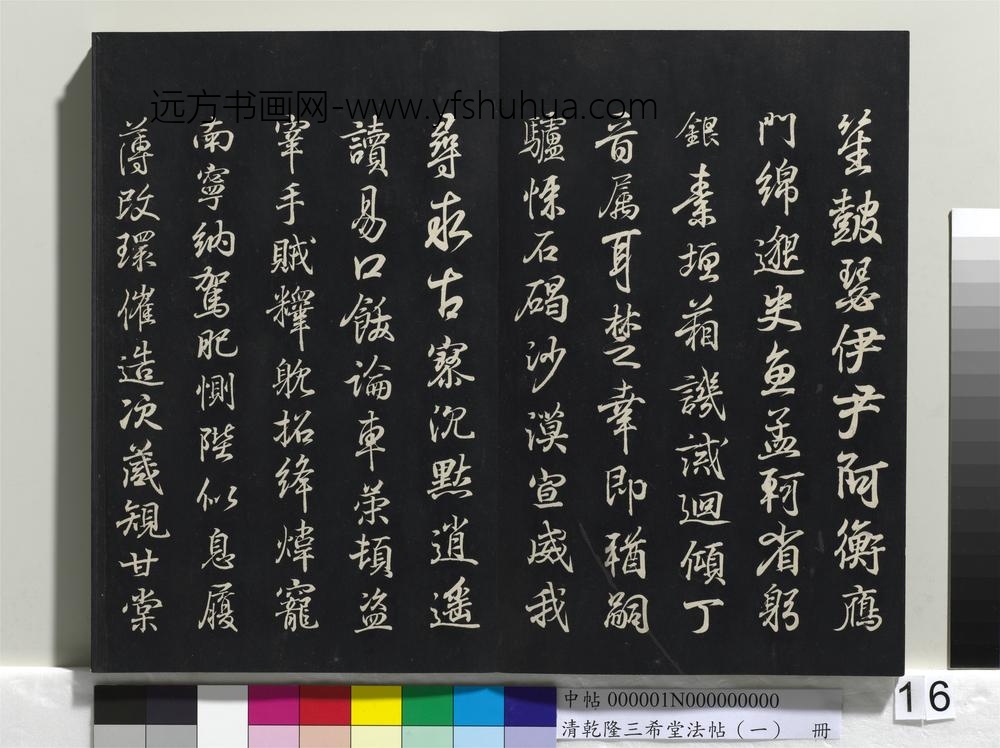 远方书画网-www.yfshuhua.com
笙鼓瑟伊尹阿衡鴈
門綿邈史魚孟軻省躬
銀素垣箱譏誡迴傾丁
首属耳楚幸即猶嗣
驢悚石碣沙漠宣威我
尋求古寮沉默逍遥
讀易口論車頓盗
宰手賊釋躭招絳煒寵
南寧納駕肥惻陛似息履
薄改環催造次箴規甘棠
中帖 000001N000000000
清乾隆三希堂法帖（一） 冊
16